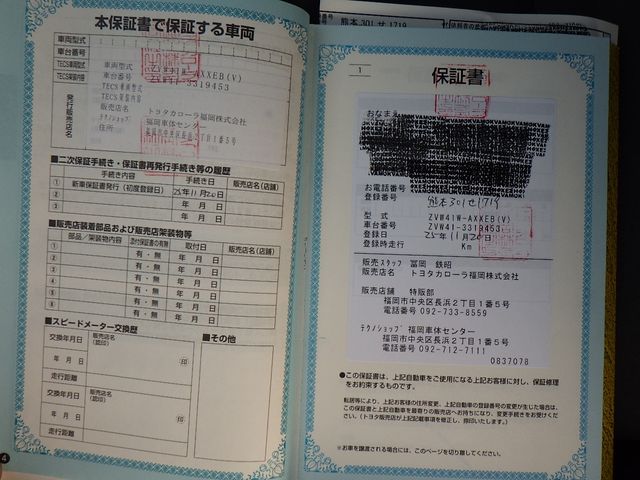 本保証書で保証する車両
車両型式
車台番号
TECS車両型式
TECS架装内容
発行販売店名
車両型式 AXXEB(V)
車台番号 3319453
TECS車両型式
TECS架装内容
販売店名 トヨタカローラ福岡株式会社
テクノショップ 福岡車体センター
住所 福岡市中央区長浜2丁目1番5号
■二次保証手続き・保証書再発行手続き等の履歴
手続き内容 手続き日 販売店名(店舗)
① 新車保証書発行(初度登録日) 25年11月20日
② 年 月 日
③ 年 月 日
■販売店装着部品および販売店架装物等
部品/架装物内容 添付保証書の有無 取付日 販売店名(店舗)
① 有・無 年 月 日
② 有・無 年 月 日
③ 有・無 年 月 日
④ 有・無 年 月 日
⑤ 有・無 年 月 日
⑥ 有・無 年 月 日
■スピードメーター交換歴
交換年月日 販売店名(認印)
年 月 日 印
走行距離
交換年月日 販売店名(認印)
年 月 日 印
走行距離
■その他
4
熊本301せ1719
1
保証書
おなまえ
お電話番号
登録番号 熊本301せ1719
型 式 ZVW41W-AXXEB(V)
車台番号 ZVW41-3319453
登録日 25年11月20日
登録時走行 Km
販売スタッフ 冨岡 鉄昭
販売店名 トヨタカローラ福岡株式会社
販売店舗 特販部
福岡市中央区長浜2丁目1番5号
電話番号 092-733-8559
テクノショップ 福岡車体センター
福岡市中央区長浜2丁目1番5号
電話番号 092-712-7111
0837078
●この保証書は、上記自動車をご使用になる上記お客様に対し、保証修理
をお約束するものです。
転居等により、上記お客様の住所変更、上記自動車の登録番号の変更が生じた場合は、
この保証書と上記自動車を最寄りの販売店へお持ちになり、変更手続きをお受けくだ
さい。(トヨタ販売店が上記記載事項を修正し、捺印いたします。)
※お車を譲渡される場合には、このページを切り離してください。